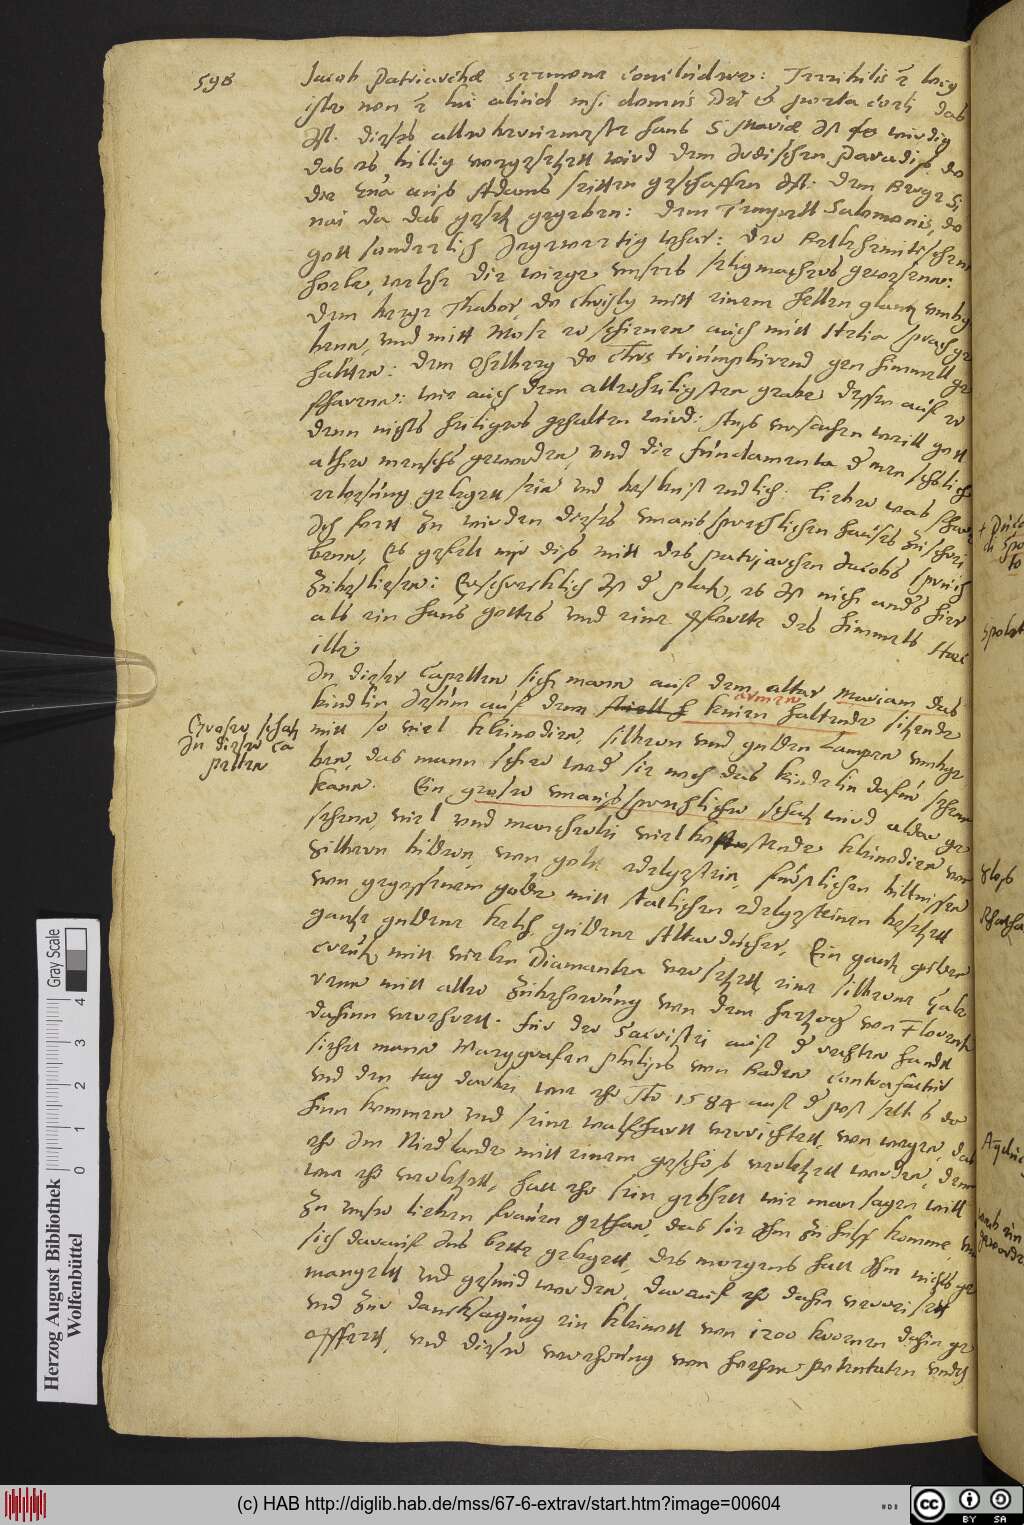 598
Jacob Patriarchae sermone concludere: Terribilis est locus
iste non est hic aliud nisi domus Dei et porta coeli das
Ist. dieses allerheerwirdigste haus S Mariae ist so wirdig
das es billig vorgesetzet wird dem Irdischen Paradiß, do
die Eua auß Adams seitten geschaffen ist: dem Berge Si
nai da das gesetz gegeben: dem Tempell Salomonis, do
gott sonderlich gegenwertig wahr: der Bethlehemitischen
hoele, welche die wiege unsers seligmachers gewesenn:
dem berge Thabor, do Christus mitt einem hellen glantz umbge
benn, und mitt Mose er schienen auch mitt Helia sprach ge
halten: dem Oehlberg do Christus triumphirend gen himmell ge
fharenn: wie auch dem allerheiligsten grabe dessen auß er
denn nichts heiligers gehalten wird: Auß ursachen weill gott
alhier mensch geworden, und die fundamenta der menschlichen
erlesung gelegett sein und beschließ endlich. Lieber was
ich fortt zu wirden dieses unaussprechlichen hauses zuschrei
benn, Es gefelt mir diß mitt des patriarchen Jacobs spruch
zubeschließen: Erschrecklich ist der platz, es ist nicht anders hier
als ein haus gottes und eine pforte des himmels Haec
ille
In dieser Capellen sich mann auß dem altar Mariam das
kindlin Jesum auß dem armen haltende sitzende
mitt so viel kleinodien, silbern und gulden Lampen umbge
ben, das mann schier weder sie noch das kindelin dafur sehen
kann. Ein groser unaußsprechlicher schatz wird alda ge
sehenn, viel und mancherlei vielkostende kleinodien von
silbern bildern, von gold edelgestein, kunstlichen biltnissen
von gegossenem golde mitt statlichen edelgesteinen besetzett
gantze guldene kelch guldene Altardücher, Ein gantz gulden
creutz mitt vielen Diamanten versetzett eine silberne Gale
renn mitt aller zubehorung von dem hertzog von Florentz
dahinn verehrett. Für der Sacristei auß der rechten handt
siehet mann Marggrafen Philips von Baden contrafactur
und den tag darbei wie ehr Ao 1584 auß der post selbs do
hinn kommen und seine walfhartt verrichtett, von wegen, das
ehr im Niederlande mitt einem geschoß verletzett worden, denn
wie ehr verletzett, hatt ehr sein gebett wie man sagen will
zu unser lieben frauen gethan, das sie ihm zu hulff komme, und
sich darauß ins bette gelegett, des morgens hatt ihm nichts ge
mangelt und gesund worden, darauß er dahin verreisett
und zur dancksagung ein kleinott von 1200 kronen dahin ge
opffertt, und dieser verehrung von hohen potentaten undt
Groser schatz
in dieser Ca
pellen
Herzog August Bibliothek
Wolfenbüttel
Gray Scale
0 1 2 3 4
(c) HAB http://diglib.hab.de/mss/67-6-extrav/start.htm?image=00604
BY SA